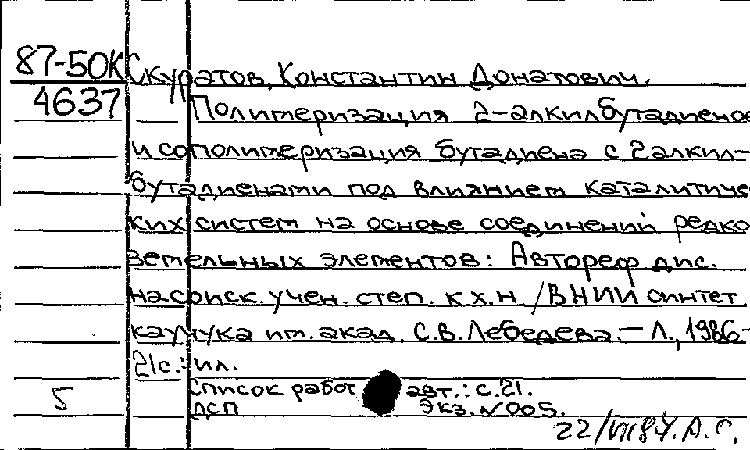 87-50К Скуратов, Константин Донатович.
4637 Полимеризация 2-алкилбутадиенов
и сополимеризация бутадиена с 2алкил-
бутадиенами под влиянием каталитичес
ких систем на основе соединений редко
земельных элементов: Автореф дис.
на соиск. учен. степ. к.х.н / ВНИИ синтет.
каучука им. акад. С.В. Лебедева. – Л., 1986-
21с.: ил.
5 Список работ авт.: с. 21.
ДСП Экз. № 005.
А.С.